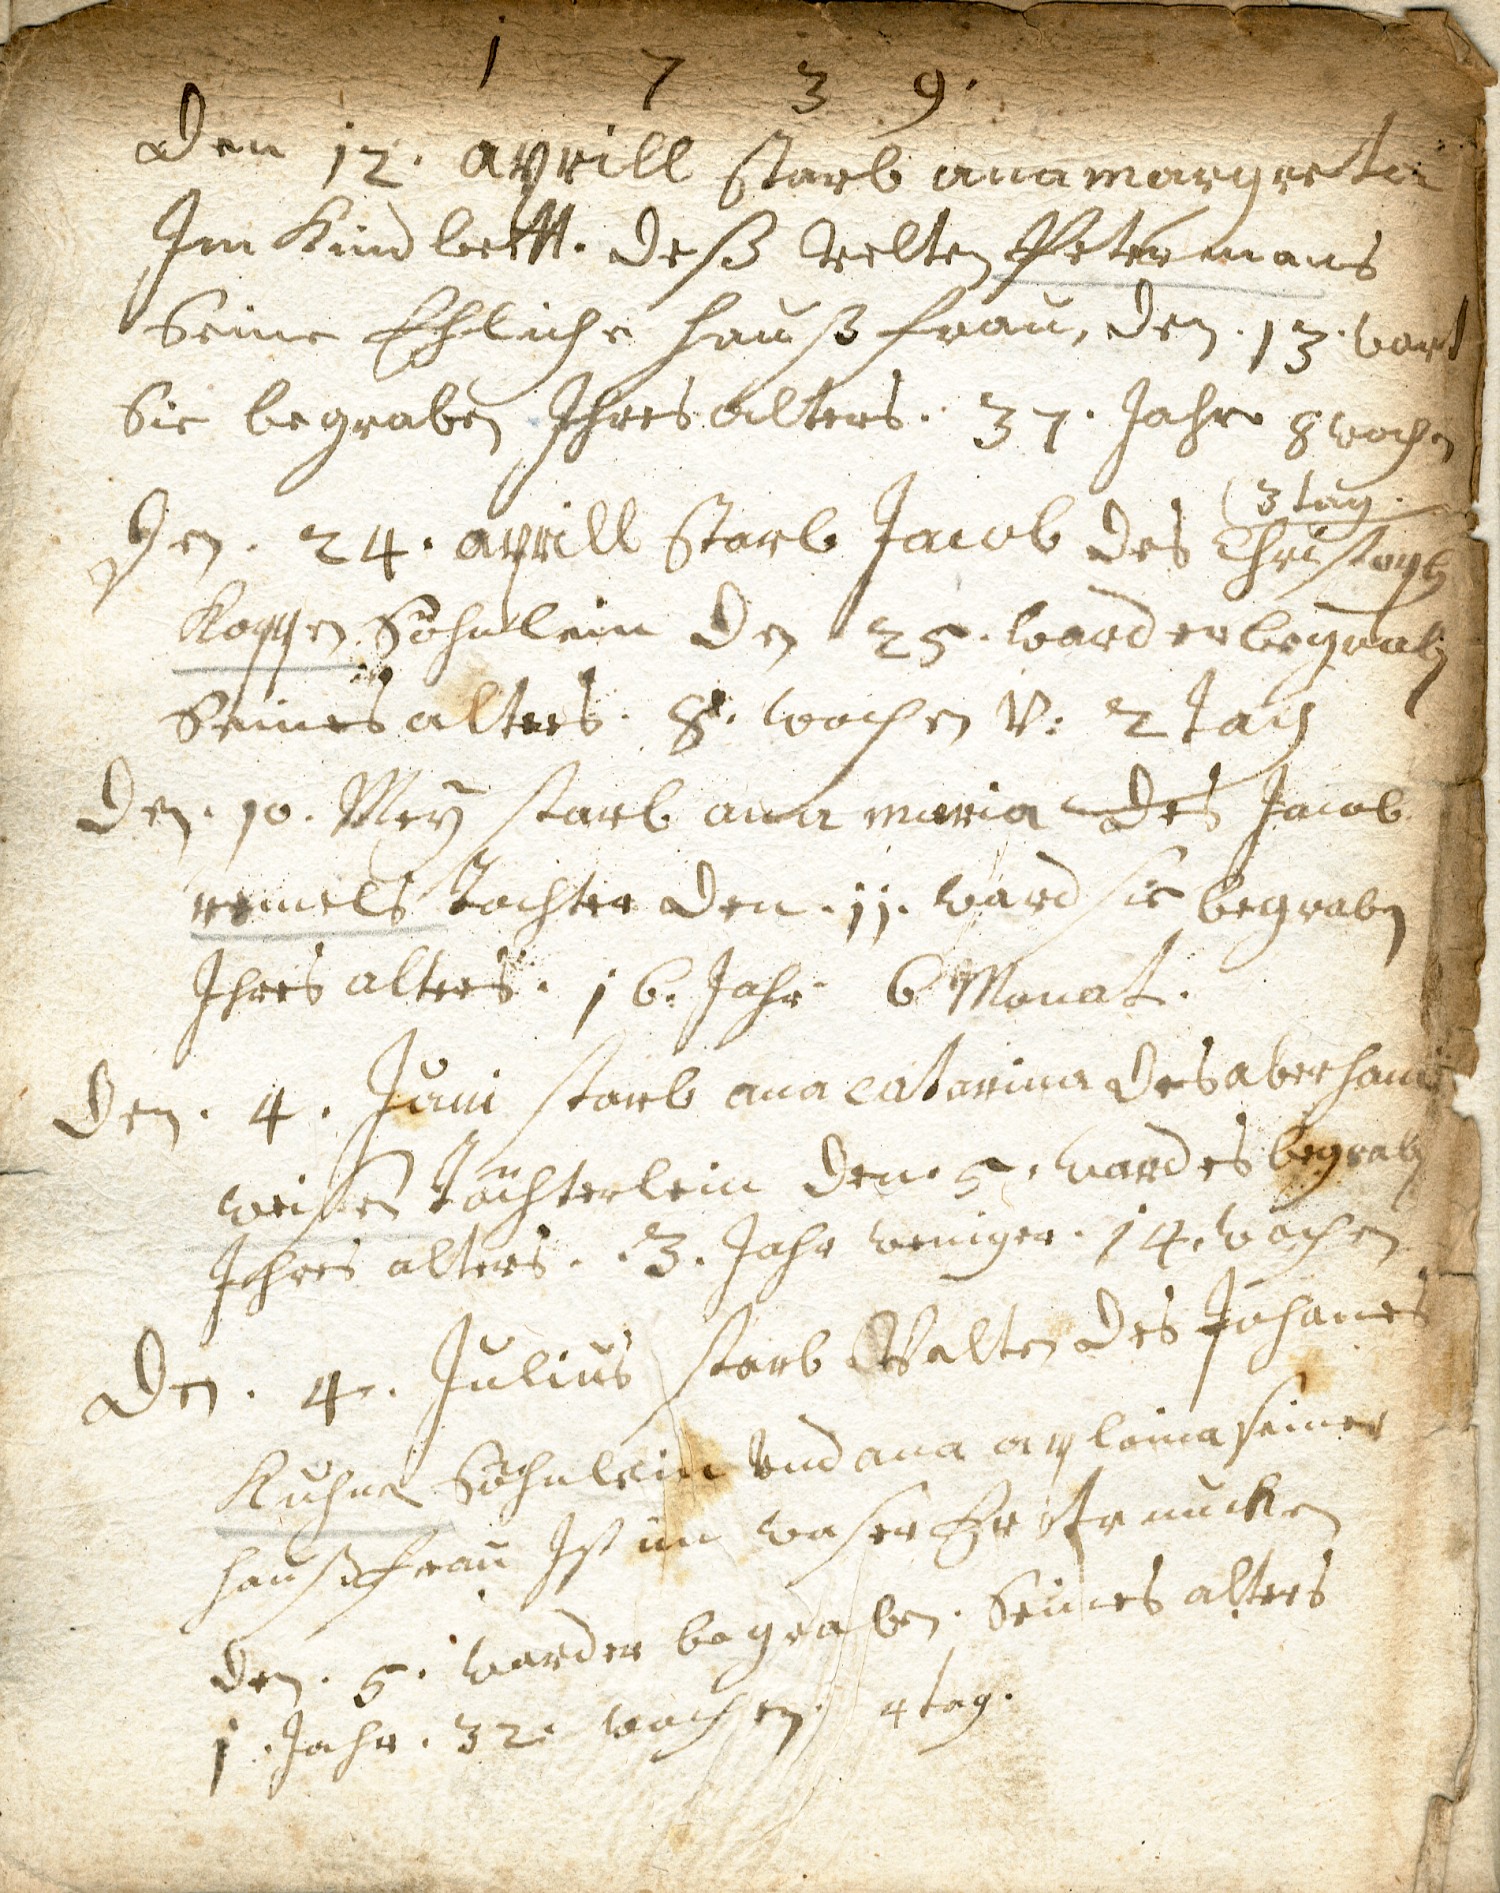 1 7 3 9.
Den 12. aprill starb ana margreta
Im Kindbett. deß velten Petermans
Seine Ehliche haußfrau, den. 13. ward
Sie begraben Ihres alters. 37. Jahr 8 wochen
3 tag.
Den. 24. aprill starb Jacob des Christoph
Koppen Söhnlein den 25. ward er begraben
Seines alters. 8. wochen v: 2 Tag
Den. 10. Mey starb ana maria des Jacob
remels tochter den. 11. ward sie begraben
Ihres alters. 16. Jahr 6 Monat.
Den. 4. Juni starb ana catarina des aberham
weisen töchterlein den. 5. ward es begraben
Ihres alters. 3. Jahr weniger. 14. wochen
Den. 4. Julius starb Valten des Johanes
Kuhna Söhnlein und ana aplonia seiner
haußfrau Ist im waser Ertruncken
den. 5. ward er begraben. Seines alters
1. Jahr. 32. wochen. 4 tag.